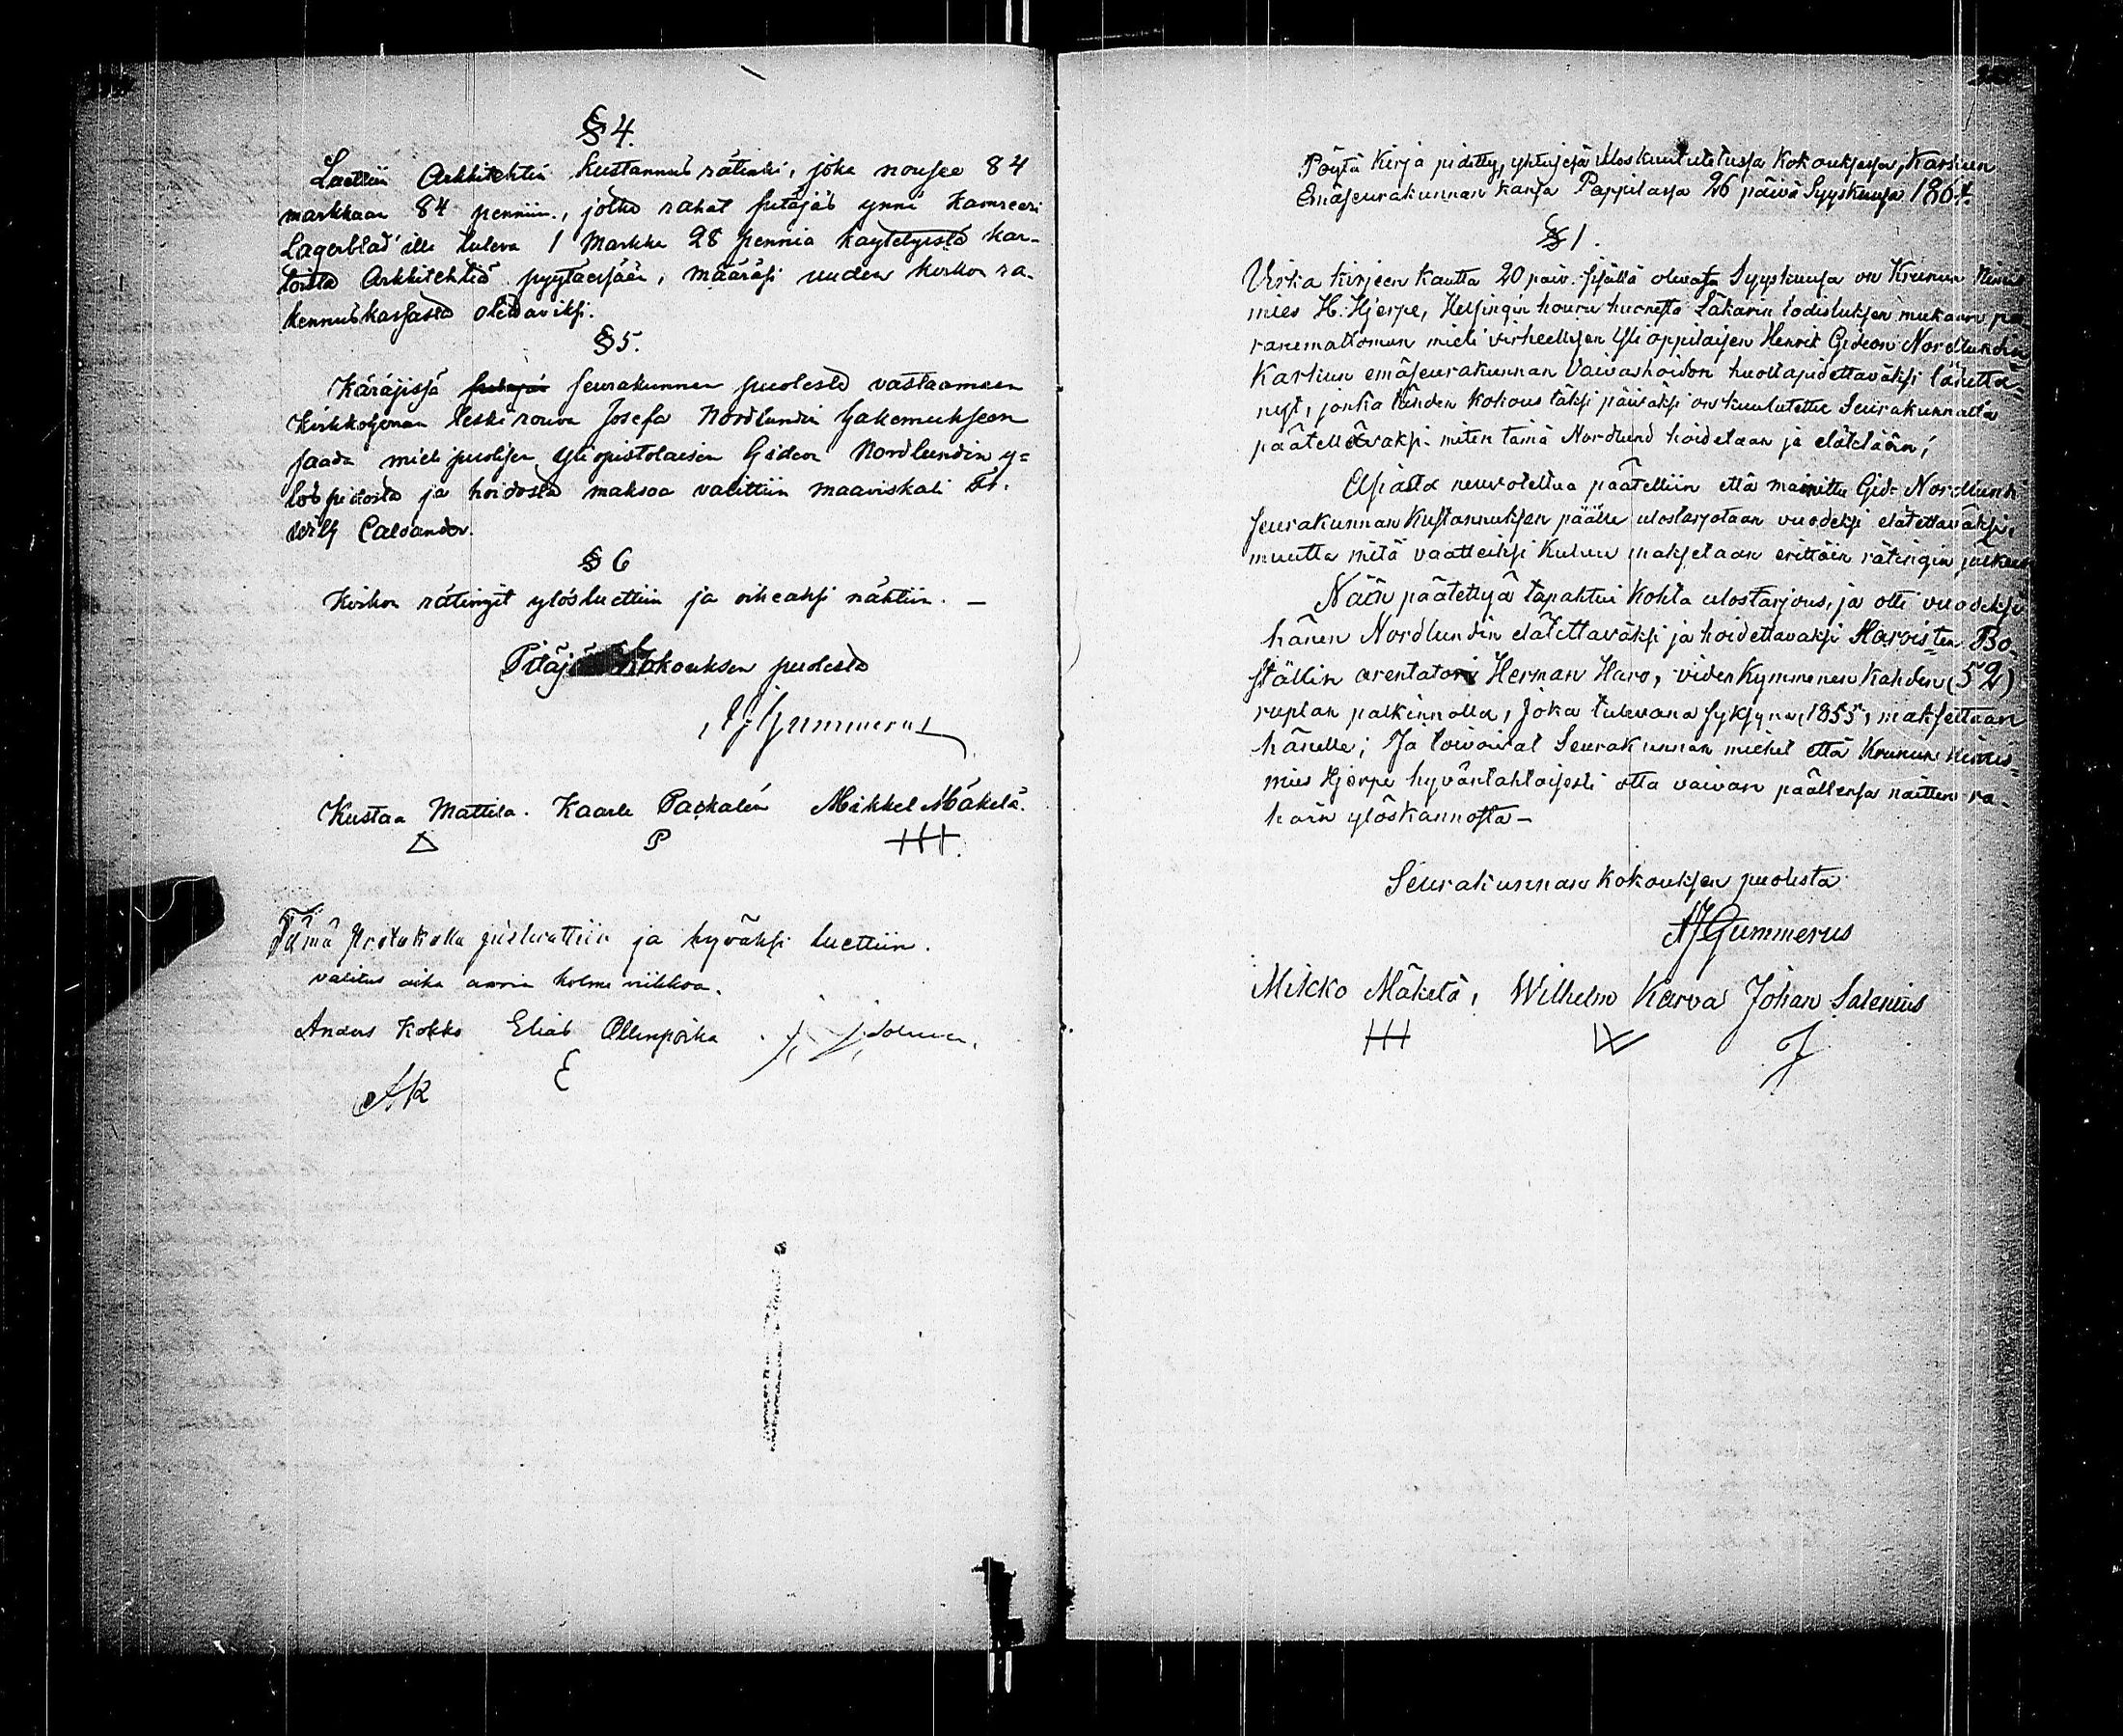 § 4.
Luettiin Arkkitehtin kustannus rätinki, joka nousee 84
markkaan 84 penniin, jotka rahat pitäjäs ynnä Kamreeri
Lagerblad'ille tuleva 1 Markka 28 penniä käytetyistä kar-
toista Arkkitehtiä pyytäessään, määräsi uuden kirkon ra-
kennuskassasta otettaviksi.
§ 5.
Käräjissä seurakunnan puolesta vastaamaan
Kirkkoherran leskirouva Josefa Nordlundin hakemukseen
saada mieli puolisen yliopistolaisen Gideon Nordlundin y-
löspidosta ja hoidosta maksoa valittiin maaviskali
Caloander.
§ 6
Kirkon rätingit ylösluettiin ja oikeaksi nähtiin. —
Pitäjän kokouksen puolesta
Gummerus
Kustaa Mattila. Kaarle Packalén Mikkel Mäkelä.
P
Tämä Protokolla julistettiin ja hyväksi luettiin.
valitus aika annin kolme viikkoa.
Anders Kokko Elias Ollinpoika
AK E
Pöytä Kirja pidetty, yhteisesä uloskuulutetussa Kokouksessa, Karkun
Emäseurakunnan kanssa Pappilassa 26 päivä Syyskuussa 1864.
§ 1.
Virka kirjeen kautta 20 päiv. sisällä olevassa Syyskuussa on Kruunun Nimis
mies H. Hjerpe, Helsingin houru huoneesta Läkärin todistuksen mukaan pa-
ranemattoman mieli virheellisen Yli oppilaisen Henrik Gideon Nordlundin
Karkun emäseurakunnan Vaivashoidon huollapidettäväksi lähettä-
nyt, jonka tähden kokous täksi päiväksi on kuulutettu Seurakunnalta
päätettäväksi miten tämä Nordlund hoidetaan ja elätetään;
Asiasta neuvoteltua päätettiin että mainittu Gid. Nordlund
seurakunnan Kustannuksen päälle ulostarjotaan vuodeksi elätettäväksi,
muutta mitä vaatteiksi kuluu maksetaan erittäin rätingin jälkeen
Näin päätettyä tapahtui kohta ulostarjous, ja otti vuodeksi
hänen Nordlundin elätettäväksi ja hoidettavaksi Harvisten Bo-
ställin arentatori Herman Haro, viiden Kymmenen Kahden (52)
ruplan palkinnolla, Joka tulevana syksynä, 1855, maksettaan
hänelle; Ja toivoivat Seurakunnan miehet että Kruunun nimis-
mies Hjerpe hyväntahtoisesti otta vaivan päällensä näitten ra-
hain ylöskannosta —
Seurakunnan kokouksen puolesta
AJGummerus
Mikko Mäkelä, Wilhelm Karva Johan Salenius
W J